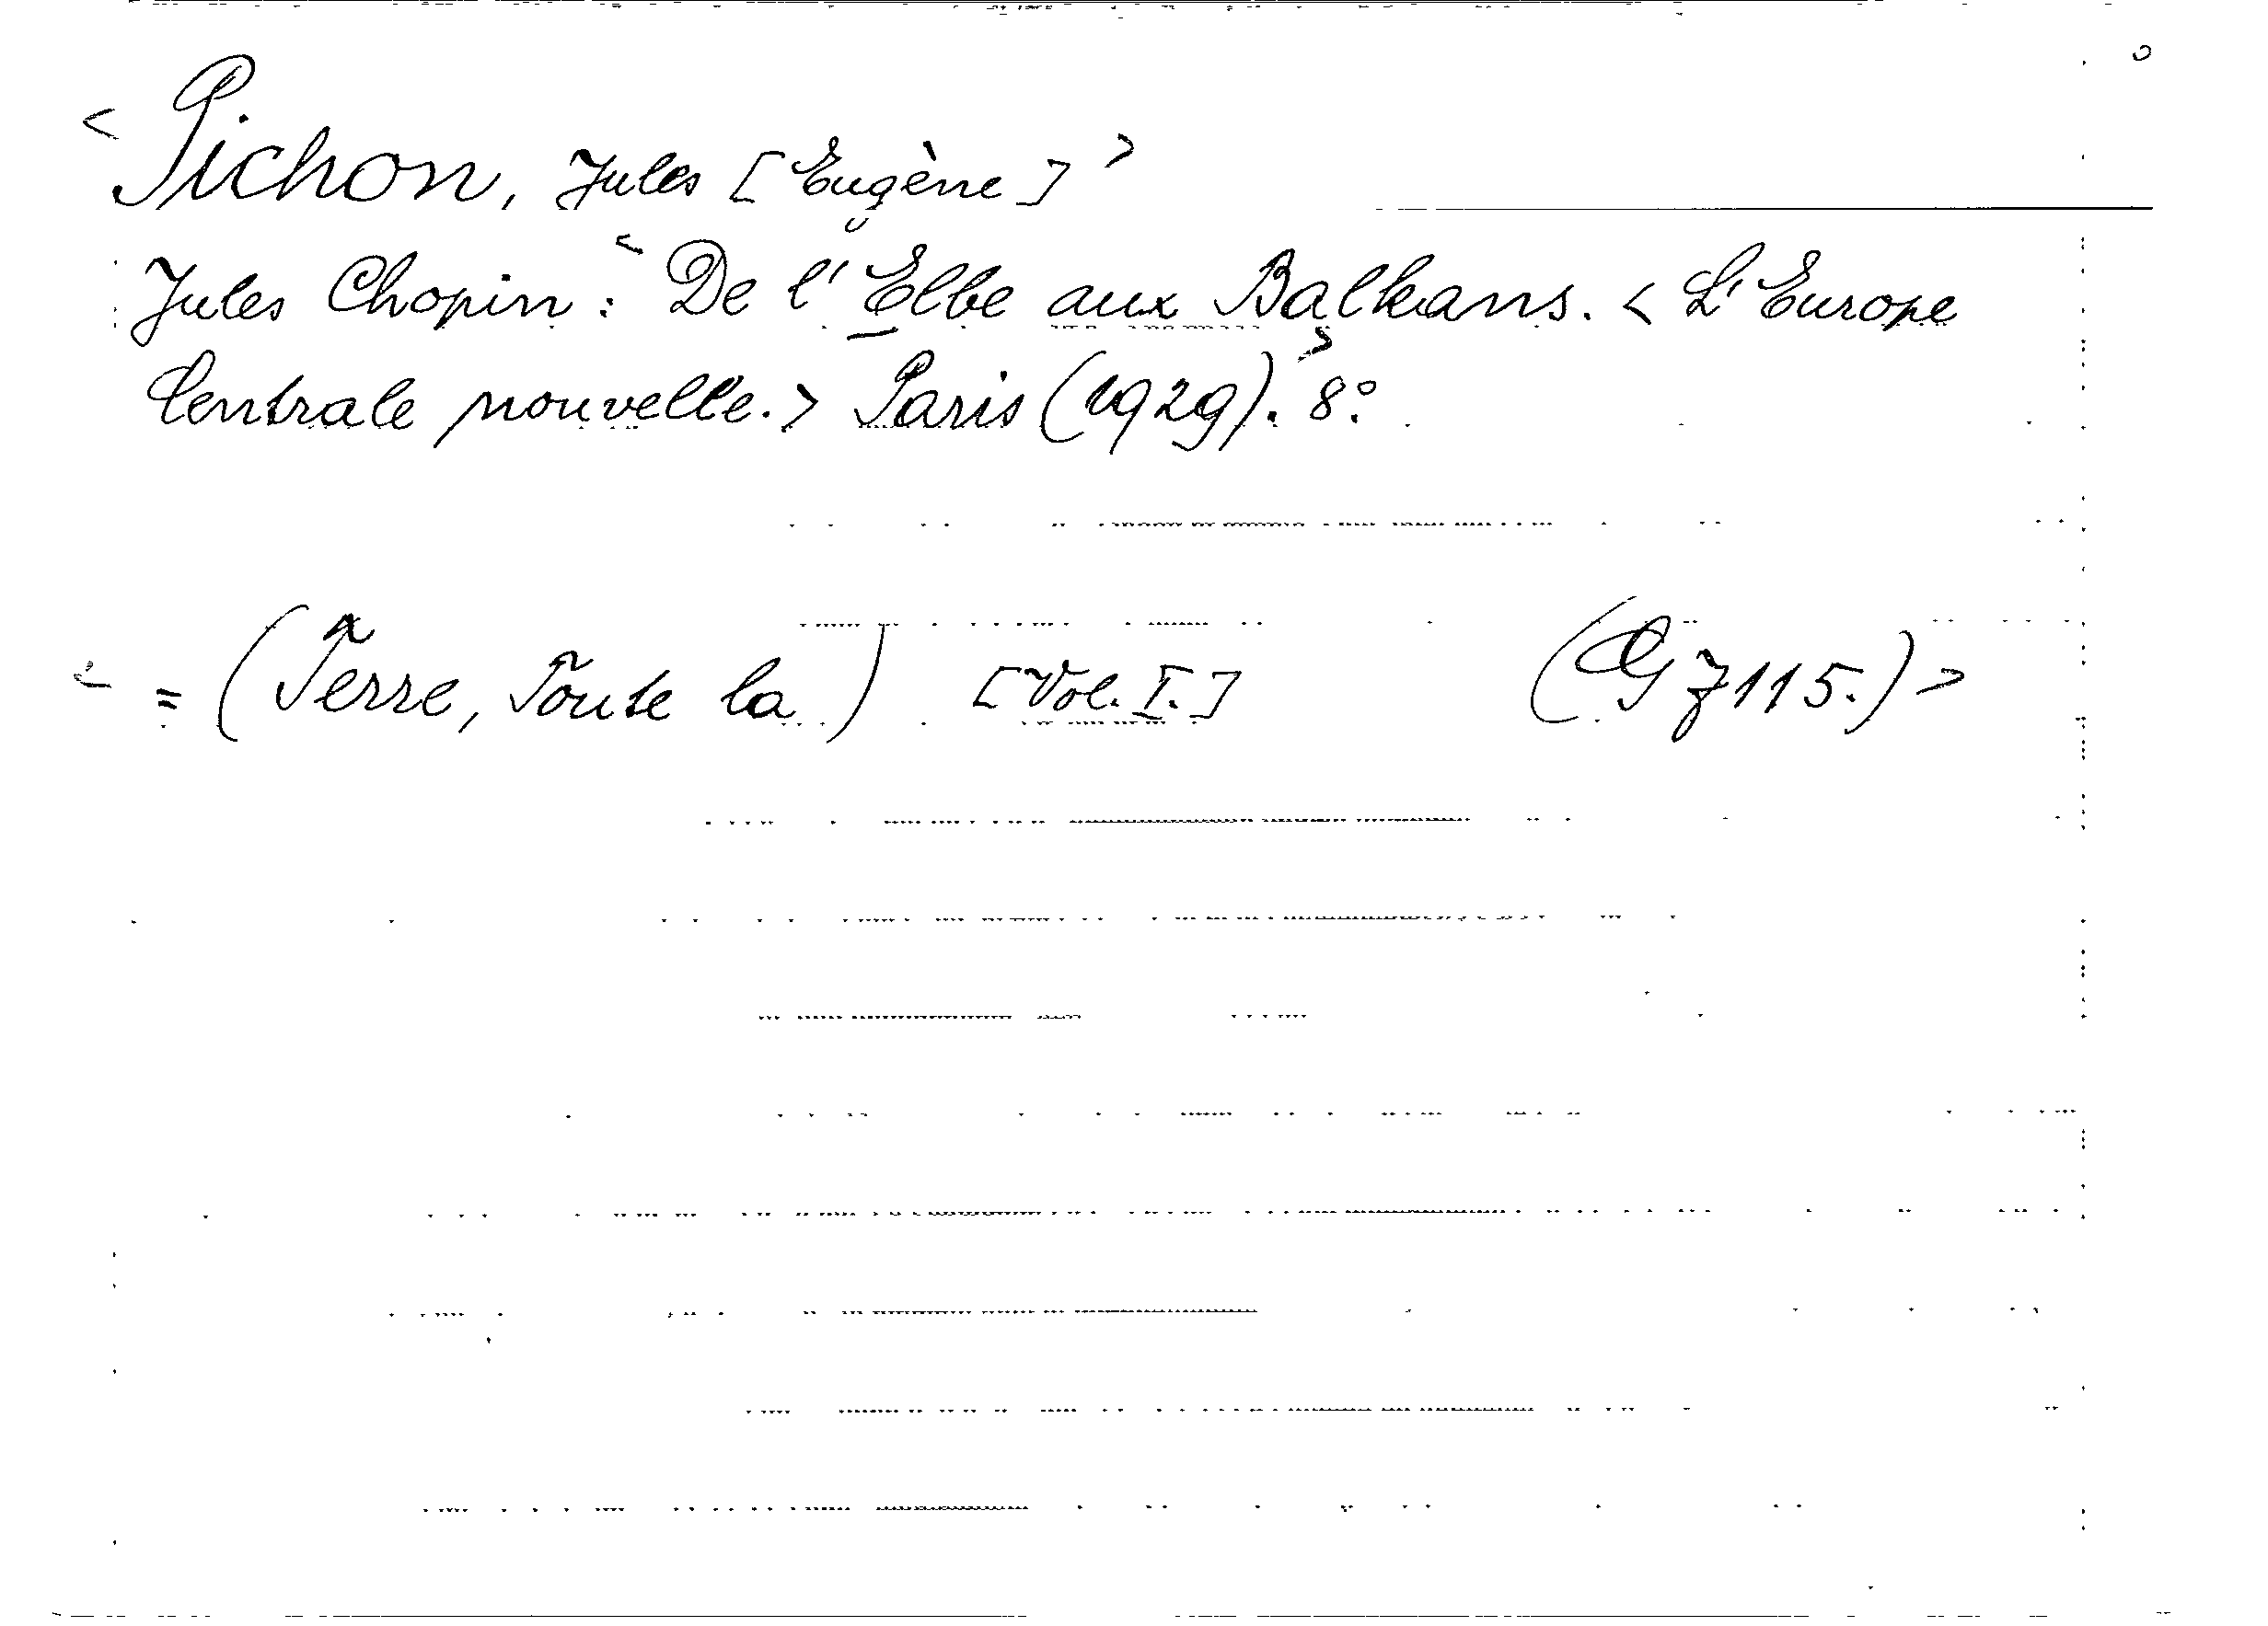 < Pichon, Jules [Eugène] >
Jules Chopin: < De l'Elbe aux Balkans. < L'Europe
Centrale nouvelle. > Paris (1929). > 8°.
< = (Terre, Toute la) [Vol. I.] (G 7115.) >